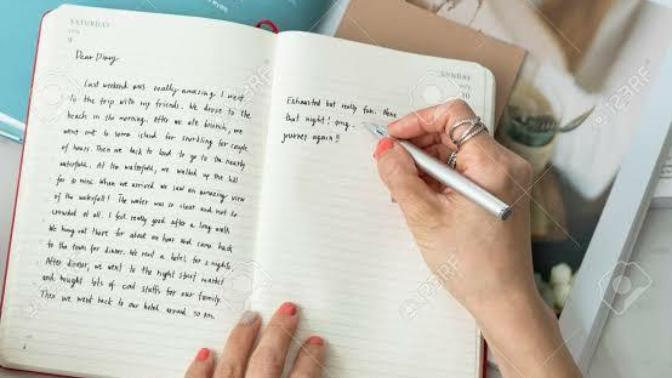 SATURDAY
9
Dear Diary,
Last weekend was really amazing. I went
to the trip with my friends. We drove to the
beach in the morning. After we ate brunch, we
went out to some island for snorkling for couple
of hours. Then we back to land to go to the nearby
waterfall. At the waterfall, we walked up the hill
for 30 mins. When we arrived we saw an amazing view
of the waterfall! The water was so clear and not so
crowded at all. I feel really good after a long walk
We hung out there for about an hour and came back
to the town for dinner. We rent a hotel for 2 nights.
After dinner, we went to the night street market
and bought lots of cool stuffs for our family.
Then we went back to our hotel around
SUNDAY
10
Exhausted but really fun.
that night! omg.
journey again!!
123RF